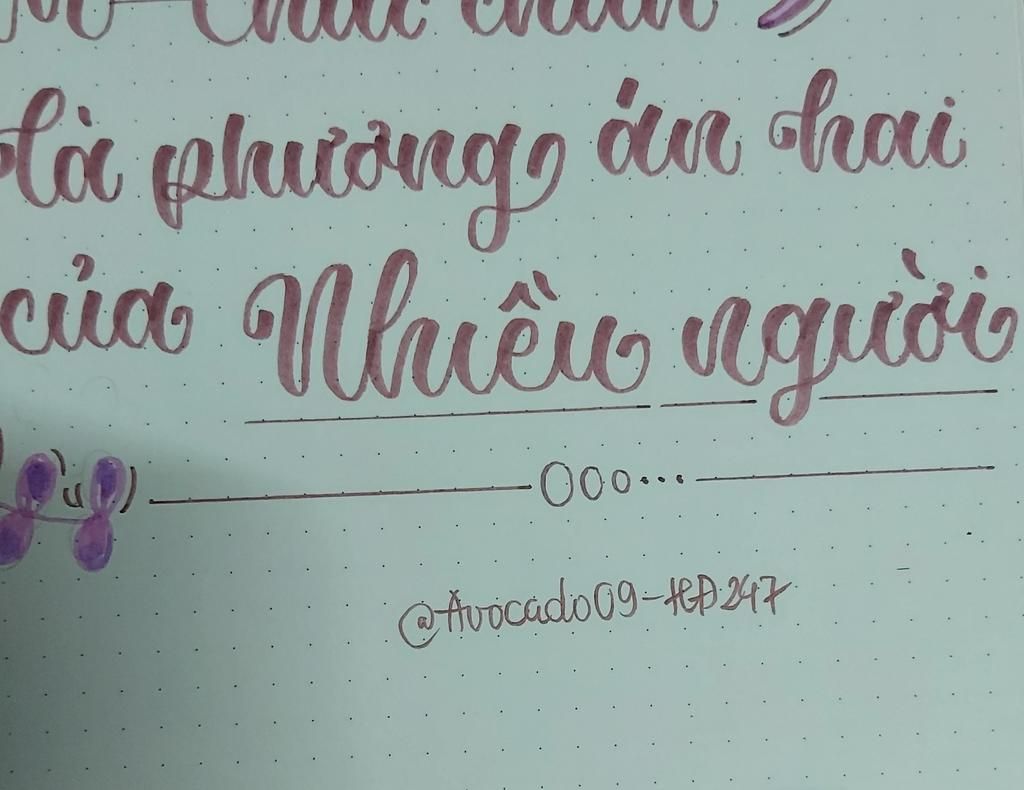 chắc chắn
là phương án hai
của Nhiều người
@Avocado09-HD247